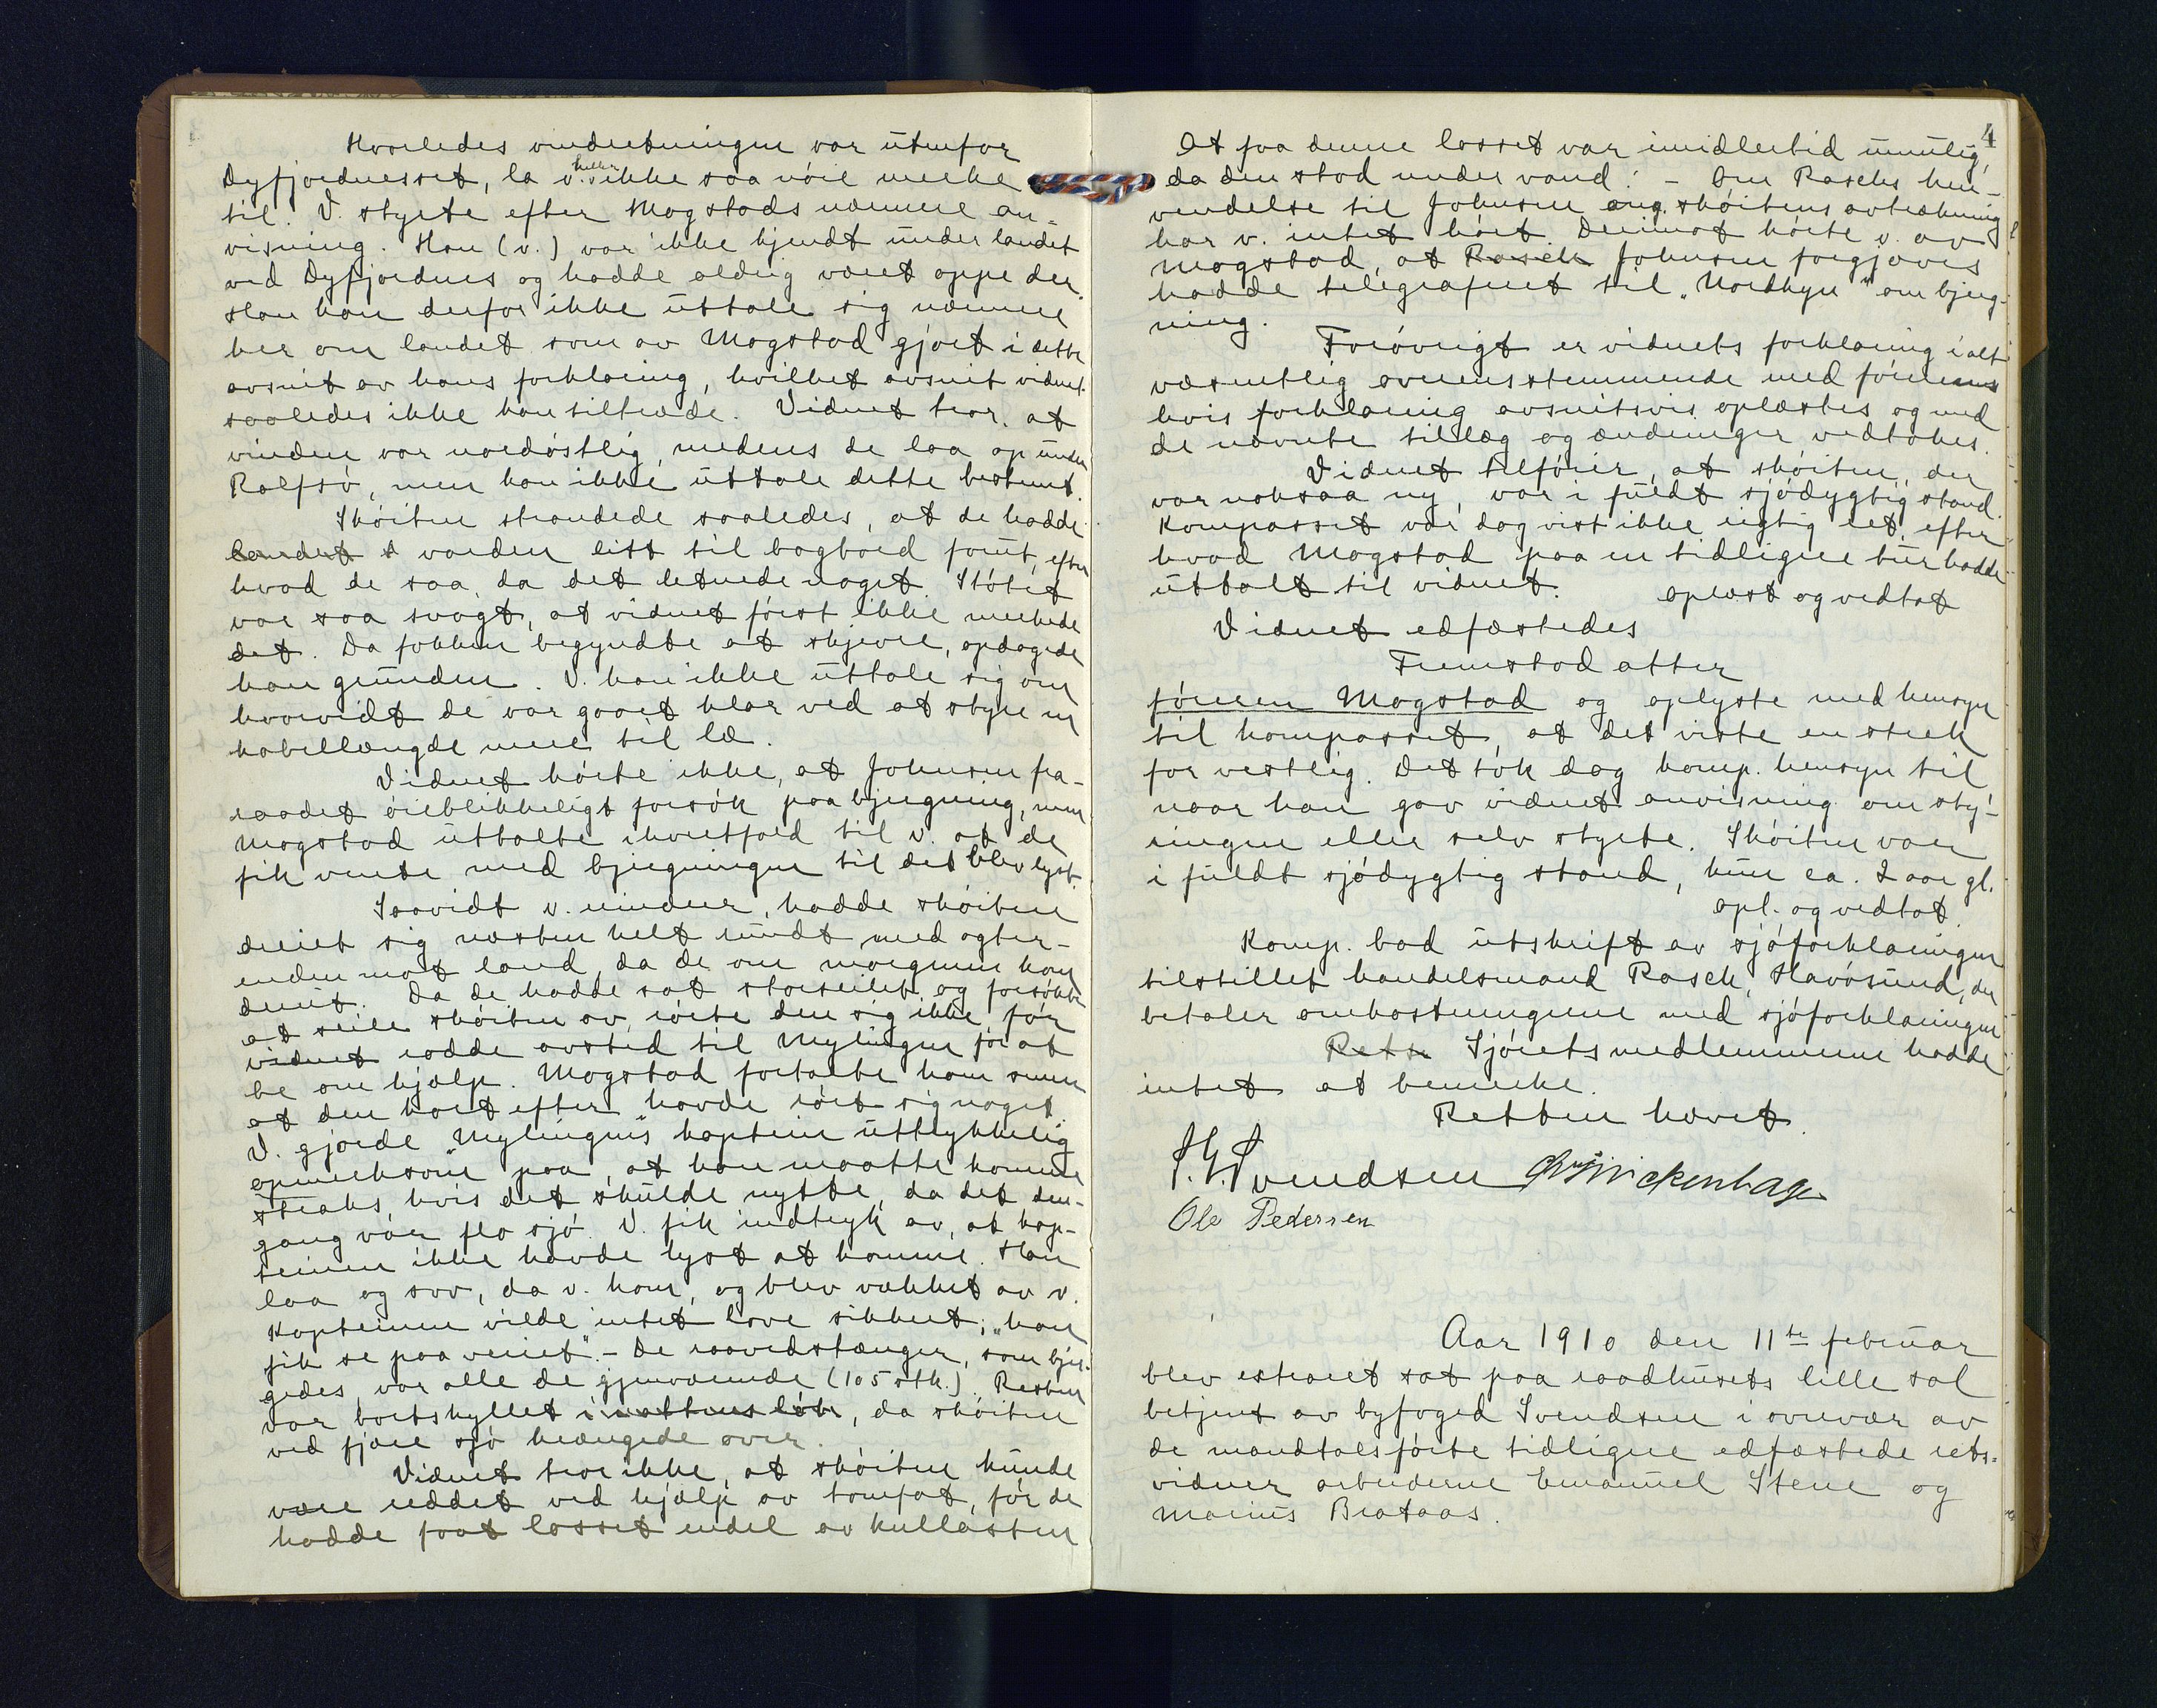 Hvorledes vindretningen var utenfor
Dyfjordnesset, la v. heller ikke saa nöie merke
til. V. styrte efter Mogstads nærmere an-
visning. Han (v.) var ikke kjendt under landet
ved Dyfjordnes og hadde aldrig været oppe der.
Han kan derfor ikke uttale sig nærmere
her om landet som av Mogstad gjort i dette
avsnit av hans forklaring, hvilket avsnit vidnet
saaledes ikke kan tiltræde. Vidnet tror, at
vinden var nordöstlig, medens de laa op under
Rolfsö, men kan ikke uttale dette bestemt.
Sköiten strandede saaledes, at de hadde
landet varden litt til bagbord forut, efter
hvad de saa, da det letnede noget. Stötet
var saa svagt, at vidnet först ikke merkede
det. Da fokken begyndte at skjevre, opdagede
han grunden. V. kan ikke uttale sig om
hvorvidt de var gaaet klar ved at styre en
kabellængde mere til læ.
Vidnet hörte ikke, at Johnsen fra-
raadet öieblikkeligt forsök paa bjergning, men
Mogstad uttalte ihvertfald til v. at de
fik vente med bjergningen til det blev lyst.
Saavidt v. minder, hadde sköiten
dreiet sig næsten helt rundt med agter-
enden mot land, da de om morgenen kom
derut. Da de hadde sat storseilet og forsökte
at seile sköiten av, rörte den sig ikke för
vidnet rodde avsted til Mylingen for at
be om hjælp. Mogstad fortalte ham senere
at den kort efter havde rört sig noget.
V. gjorde "Mylingens" kaptein uttrykkelig
opmerksom paa, at han maatte komme
straks, hvis det skulde nytte, da det den-
gang var flo sjö. V. fik indtryk av, at kap-
teinen ikke havde lyst at komme. Han
laa og sov, da v. kom, og blev vækket av v.
Kapteinen vilde intet love sikkert; "han
fik se paa veiret". - De raavedstænger, som bjer-
gedes, var alle de gjenværende (105 stk.). Resten
var bortskyllet i nattens löb, da sköiten
ved fjære sjö krængede over.
Vidnet tror ikke, at sköiten kunde
være reddet ved hjælp av tomfat, för de
hadde faat losset endel av kullasten
4
At faa denne losset var imidlertid umulig,
da den stod under vand. - Om Raschs hen-
vendelse til Johnsen ang. sköitens avtrækning
har v. intet hört. Derimot hörte v. av
Mogstad, at Rasch Johnsen forgjæves
hadde telegrafert til "Nordkyn" om bjerg-
ning.
Forövrigt er vidnets forklaring i alt
væsentlig overensstemmende med förerens
hvis forklaring avsnitsvis oplæstes og med
de nævnte tillæg og ændringer vedtokes.
Vidnet tilföier, at sköiten, der
var noksaa ny, var i fuldt sjödygtig stand.
Kompasset var dog vist ikke rigtig ret, efter
hvad Mogstad paa en tidligere tur hadde
uttalt til vidnet. oplæst og vedtat
Vidnet edfæstedes
Fremstod atter
föreren Mogstad og oplyste med hensyn
til kompasset, at det viste en strek
for vestlig. Det tok dog komp. hensyn til
naar han gav vidnet anvisning om sty-
ringen eller selv styrte. Sköiten var
i fuldt sjödygtig stand, kun ca. 2 aar gl.
opl. og vedtat.
Komp. bad utskrift av sjöforklaringen
tilstillet handelsmand Rasch, Havösund, der
betaler omkostningerne med sjöforklaringen
Rette Sjöretsmedlemmerne hadde
intet at bemerke.
Retten hævet.
Svendsen Chr. Wickenhagen
Ole Pedersen
Aar 1910 den 11te februar
blev extraret sat paa raadhusets lille sal
betjent av byfoged Svendsen i overvær av
de mandtalsförte tidligere edfæstede rets-
vidner arbeiderne Emanuel Stene og
Marius Brataas.